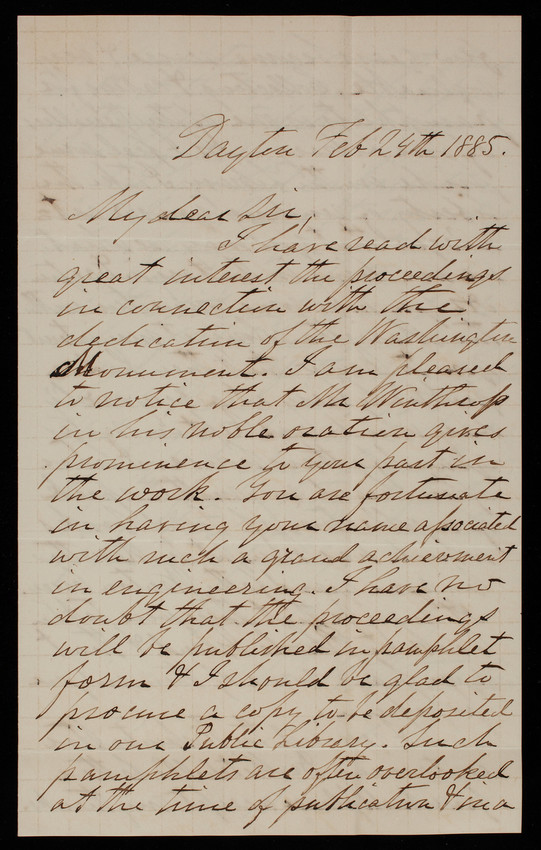 Dayton Feb 24th 1885.
My dear Sir,
I have read with
great interest the proceedings
in connection with the
dedication of the Washington
Monument. I am pleased
to notice that Mr Winthrop
in his noble oration gives
prominence to your part in
the work. You are fortunate
in having your name associated
with such a grand achievement
in engineering. I have no
doubt that the proceedings
will be published in pamphlet
form & I should be glad to
procure a copy to be deposited
in our Public Library. Such
pamphlets are often overlooked
at the time of publication & in a